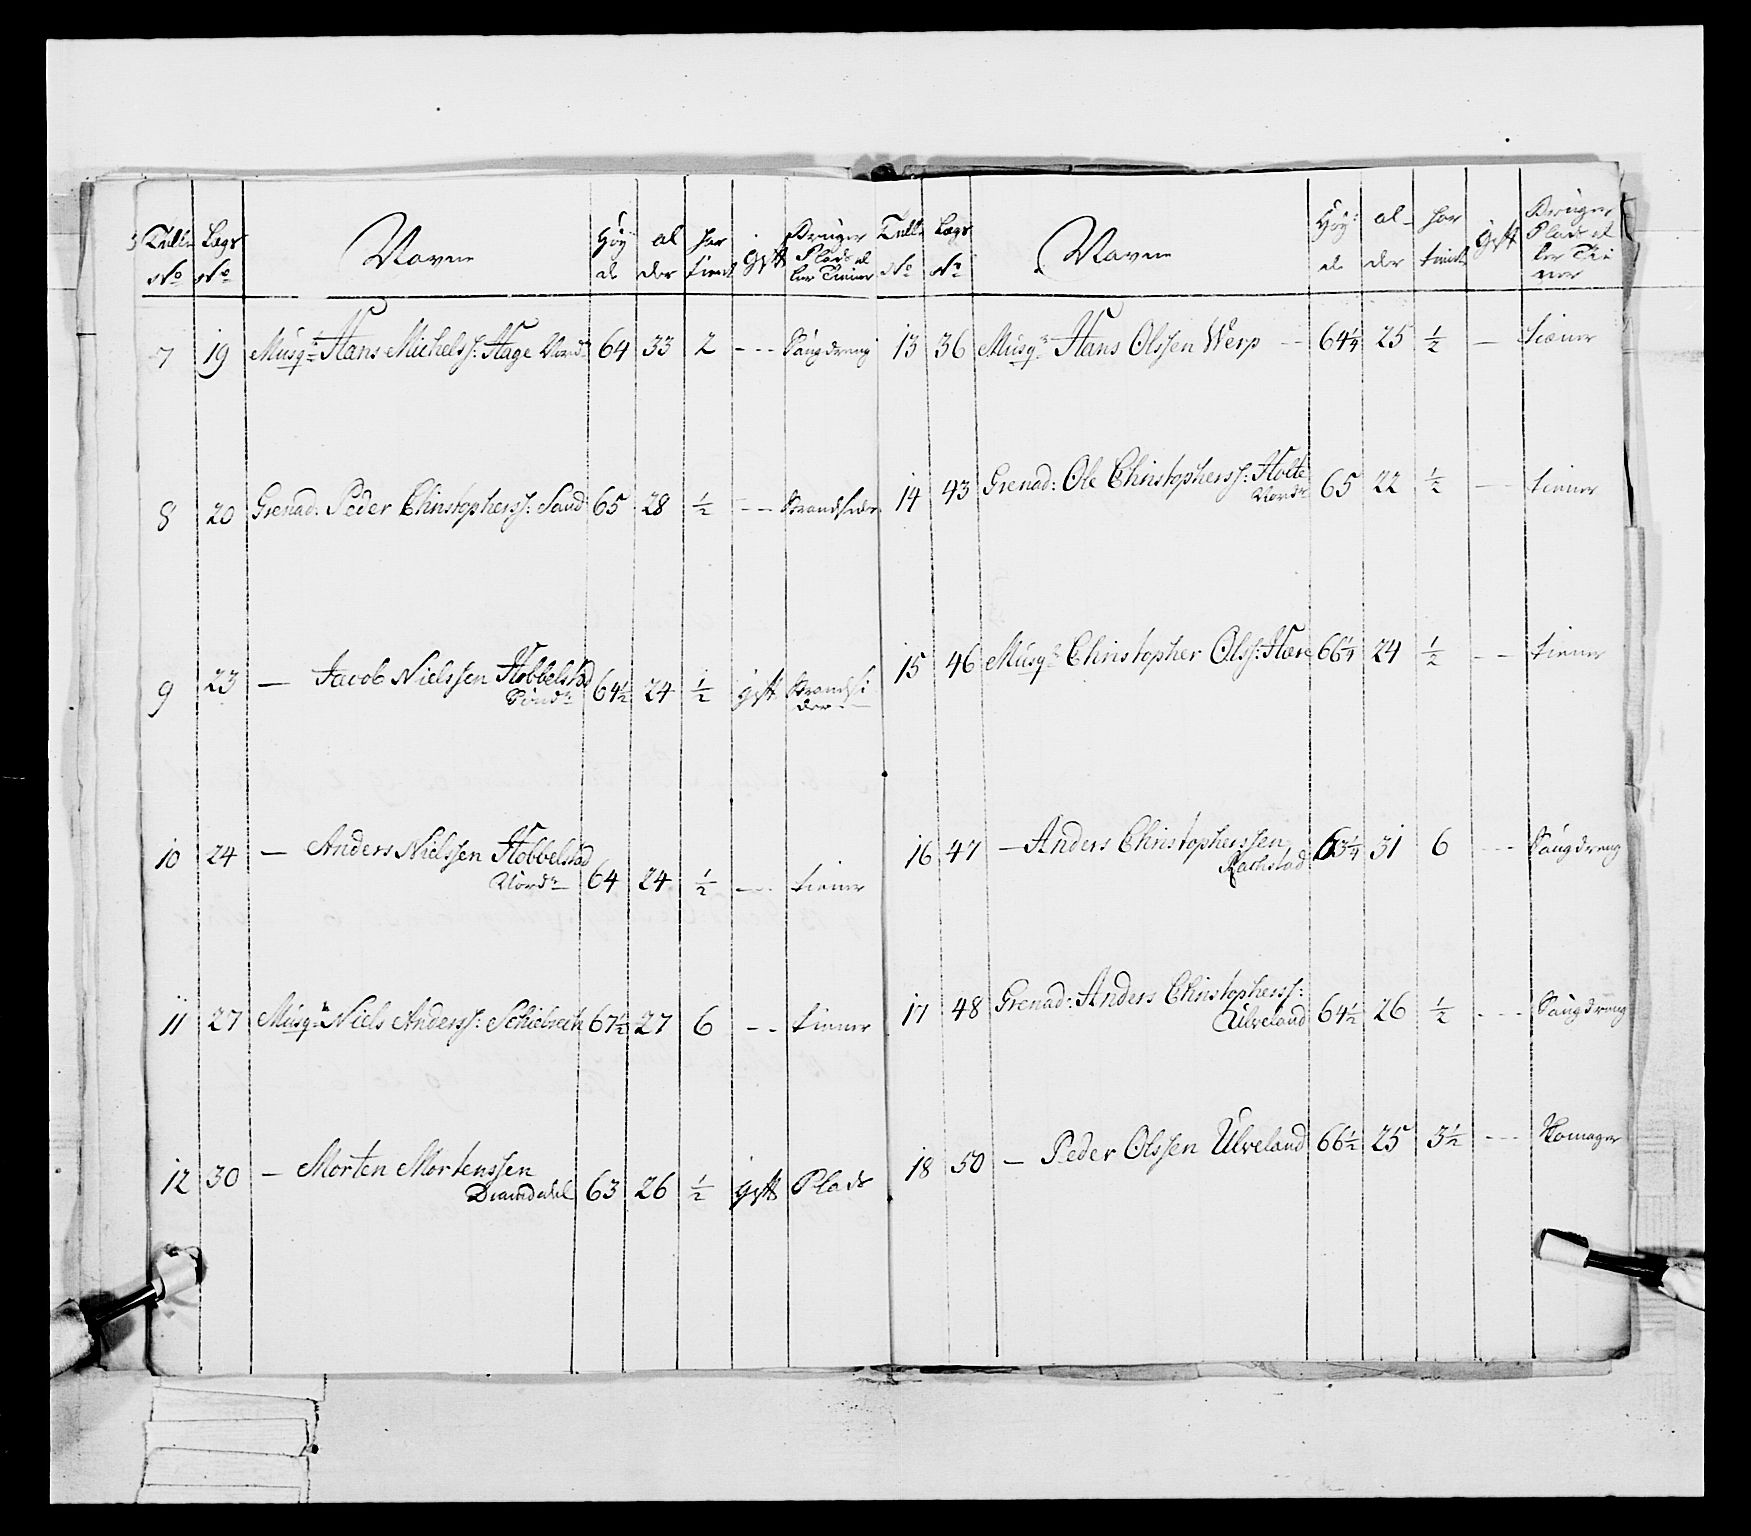 Tulle No Lægs No Navne Høy de al der har tient gift Bruger Plads el ler Tiener
7 19 Musqr Hans Michelss: Hage Nord 64 33 2 --- Saugdreng
8 20 Grenad: Peder Christopherss: Sand 65 28 ½ --- Strandsider
9 23 — Jacob Nielssen Hobbelstad
Sönd: 64½ 24 ½ gift Strandsi
der
10 24 — Anders Nielssen Hobbelstad
Nord: 64 24 ½ --- tiener
11 27 Musqr Niels Anderss: 67½ 27 6 -- tiener
12 30 — Morten Mortenssen
63 26 ½ gift Plads
Tulle No Lægs No Navne Høy: de al- der har tient gift Bruger Plads el ler Tie ner
13 36 Musqr Hans Olssen Werp -- 64¼ 25 ½ — tiener
14 43 Grenad: Ole Christopherss: Holte
Nord: 65 22 ½ -- tiener
15 46 Musqr Christopher Olss: Hære 66¼ 24 ½ -- tiener
16 47 — Anders Christopherssen
Rachstad 63¼ 31 6 --- Saugdreng
17 48 Grenad: Anders Christopherss:
Ulveland 64½ 26 ½ --- Saugdreng
18 50 — Peder Olssen Ulveland 66½ 25 3½ --- Skomager